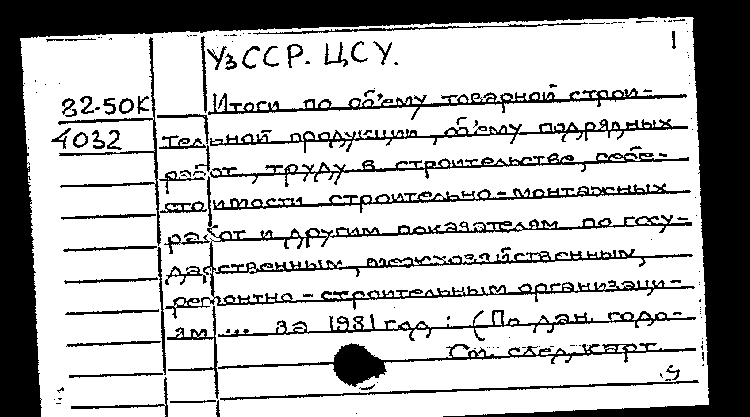 УзССР. ЦСУ.
1
82-50К Итоги по объему товарной строи-
4032 тельной продукции, объему подрядных
работ, труду в строительстве, себе-
стоимости строительно-монтажных
работ и другим показателям по госу-
дарственным, межхозяйственным,
ремонтно-строительным организаци-
ям ... за 1981 год : (По дан. годо-
См. след. карт.